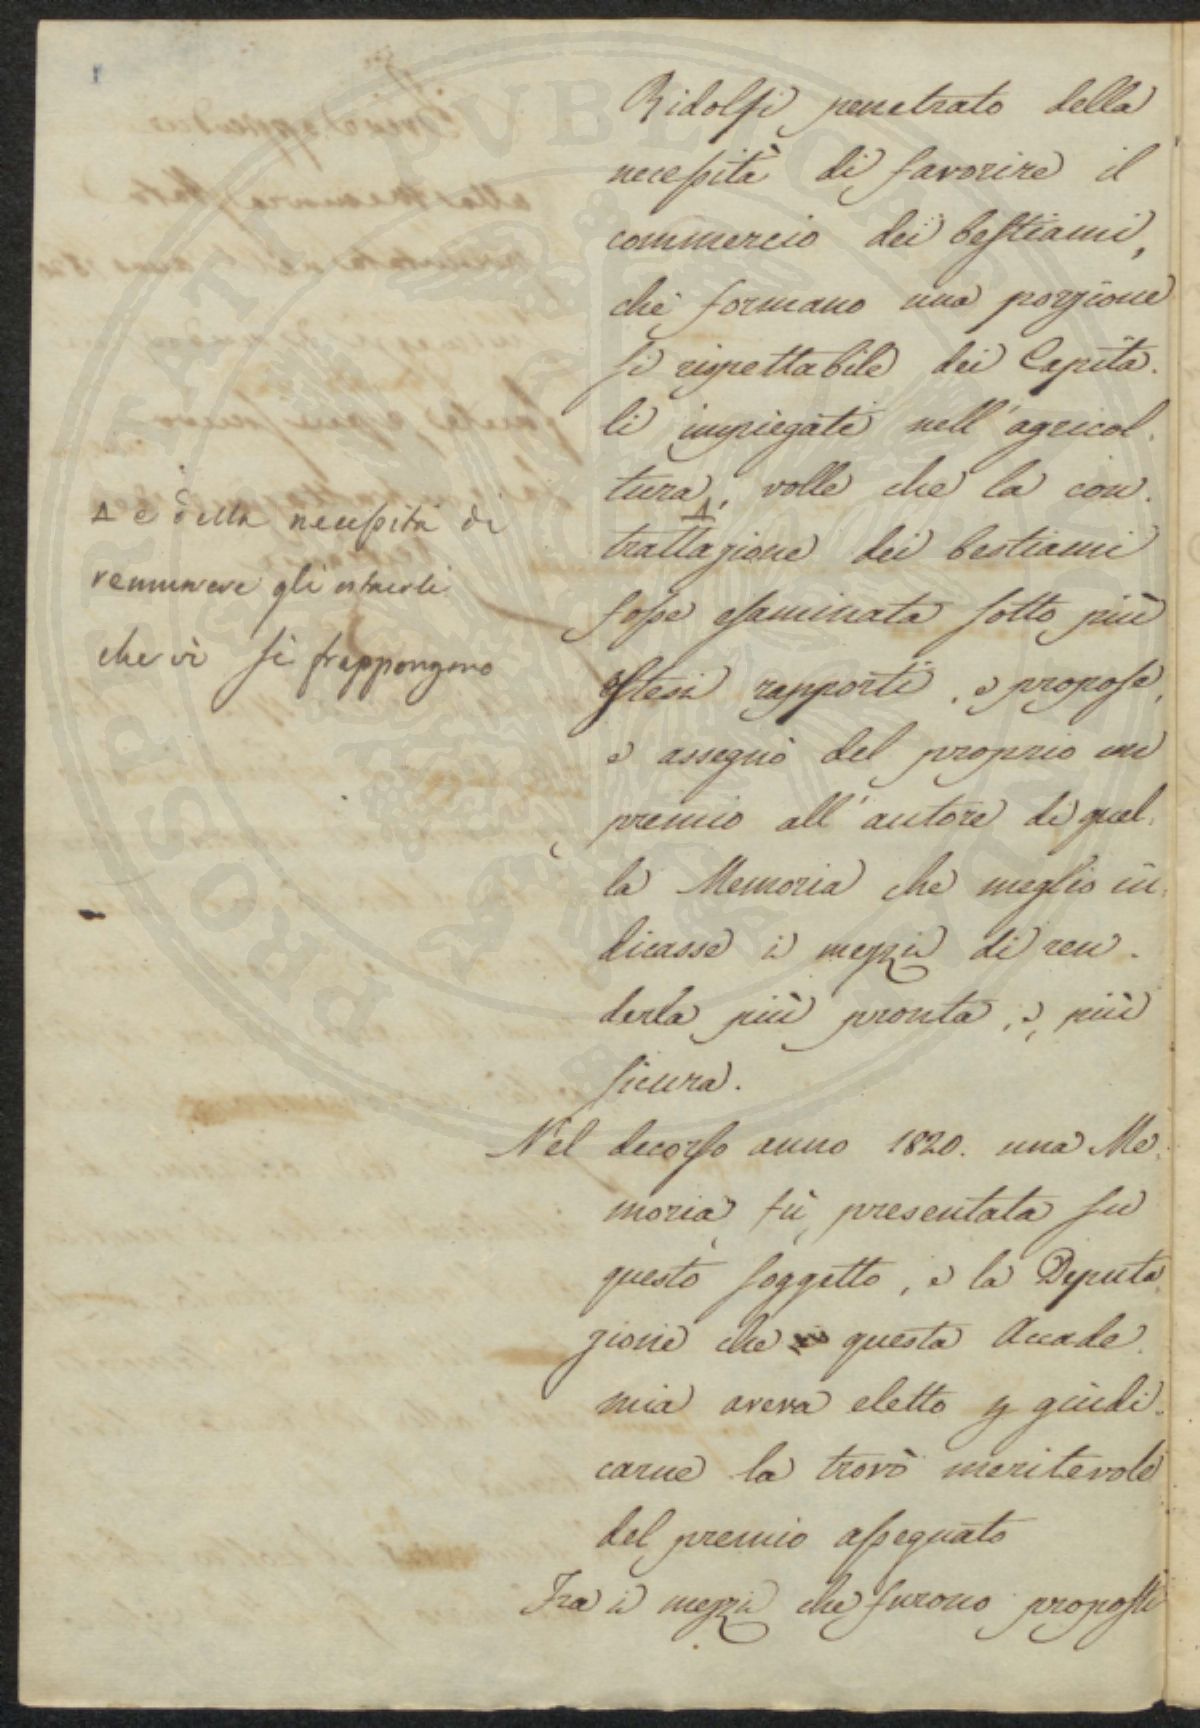 Ridolfi penetrato della
necessità di favorire il
commercio dei bestiami,
che formano una porzione
si rispettabile dei Capita-
li impiegati nell'agricol-
tura, volle che la con-
Δ
trattazione dei bestiami
fosse esaminata sotto più
estesi rapporti, e propose,
e assegnò del proprio un
premio all'autore di quel-
la Memoria che meglio in-
dicasse i mezzi di ren-
derla più pronta, e, più
sicura.
Δ e della necessità di
remuovere gli ostacoli
che vi si frappongono
Nel decorso anno 1820. una Me-
moria fù presentata su
questo soggetto, e la Deputa-
zione che questa Accade-
mia aveva eletto p giudi-
carne la trovò meritevole
del premio assegnato
Fra i mezzi che furono proposti
PROSPERITATI PUBLICAE